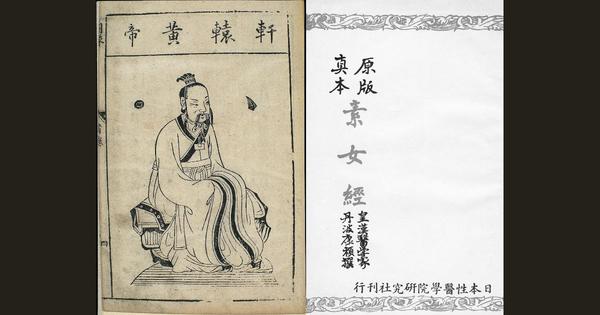 軒轅黃帝
原版
真本
素女經
皇漢醫學家
丹波康頼撰
日本性醫學院研究社刊行